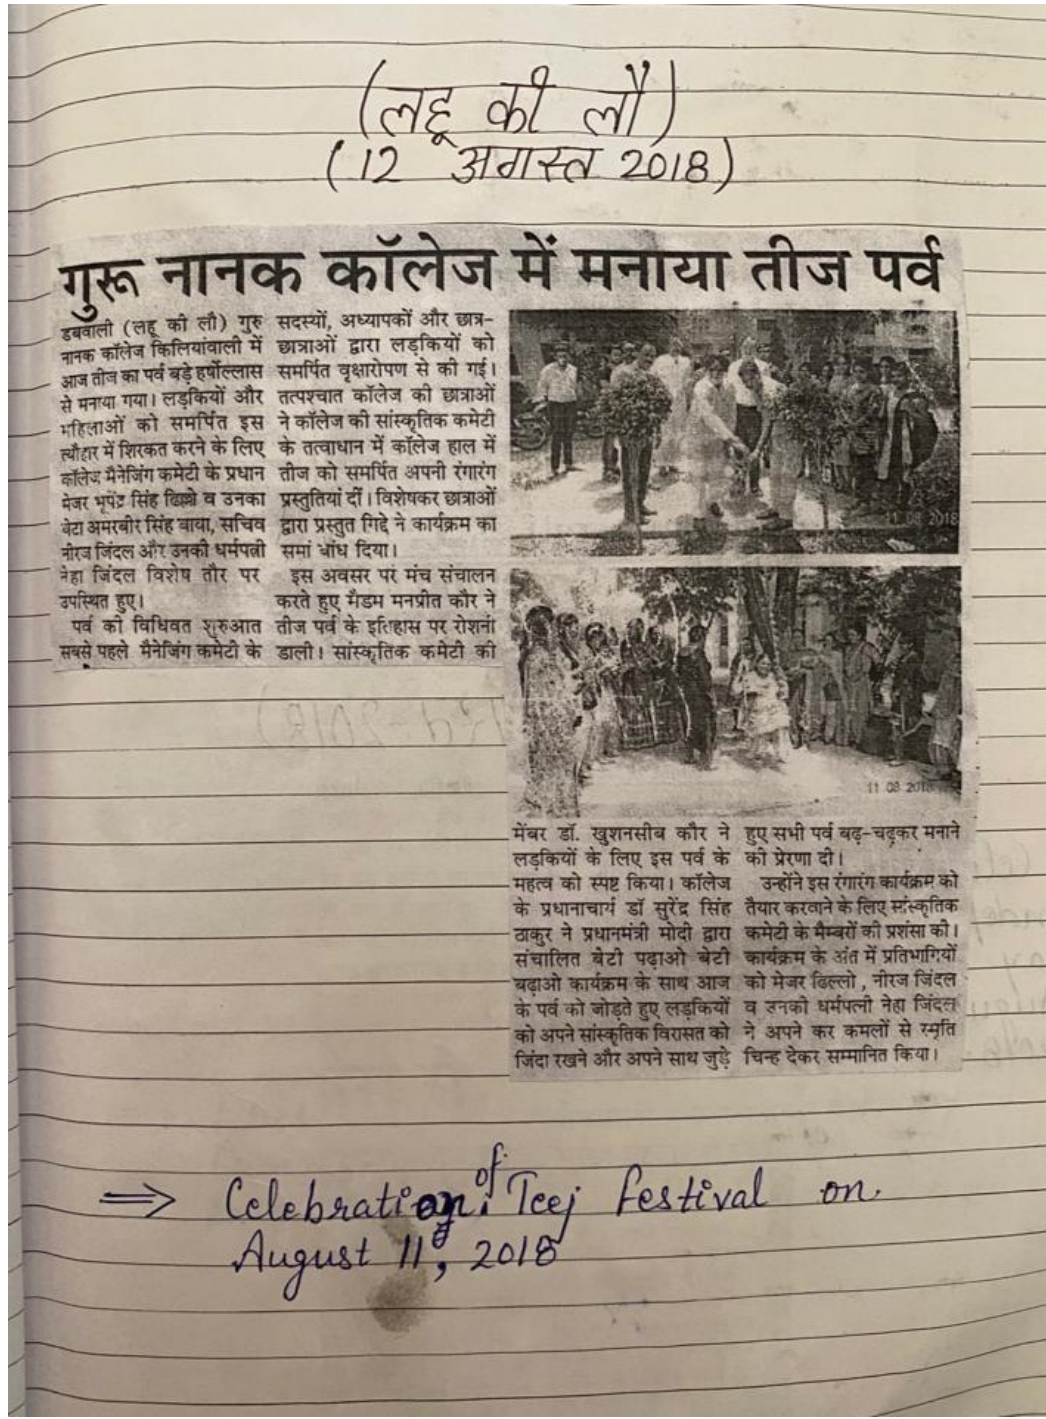 (लहू की लौ)
(12 अगस्त 2018)
गुरू नानक कॉलेज में मनाया तीज पर्व
डबवाली (लहू की लौ) गुरु
नानक कॉलेज किलियांवाली में
आज तीज का पर्व बड़े हर्षोल्लास
से मनाया गया। लड़कियों और
महिलाओं को समर्पित इस
त्यौहार में शिरकत करने के लिए
कॉलेज मैनेजिंग कमेटी के प्रधान
मेजर भूपेंद्र सिंह ढिल्लो व उनका
बेटा अमरबीर सिंह बाया, सचिव
नीरज जिंदल और उनकी धर्मपत्नी
नेहा जिंदल विशेष तौर पर
उपस्थित हुए।
पर्व की विधिवत शुरुआत
सबसे पहले मैनेजिंग कमेटी के
सदस्यों, अध्यापकों और छात्र-
छात्राओं द्वारा लड़कियों को
समर्पित वृक्षारोपण से की गई।
तत्पश्चात कॉलेज की छात्राओं
ने कॉलेज की सांस्कृतिक कमेटी
के तत्वाधान में कॉलेज हाल में
तीज को समर्पित अपनी रंगारंग
प्रस्तुतियां दीं। विशेषकर छात्राओं
द्वारा प्रस्तुत गिद्दे ने कार्यक्रम का
समां बांध दिया।
इस अवसर पर मंच संचालन
करते हुए मैडम मनप्रीत कौर ने
तीज पर्व के इतिहास पर रोशनी
डाली। सांस्कृतिक कमेटी की
11 08 2018
11 08 2018
मेंबर डॉ. खुशनसीब कौर ने
लड़कियों के लिए इस पर्व के
महत्व को स्पष्ट किया। कॉलेज
के प्रधानाचार्य डॉ सुरेंद्र सिंह
ठाकुर ने प्रधानमंत्री मोदी द्वारा
संचालित बेटी पढ़ाओ बेटी
बढ़ाओ कार्यक्रम के साथ आज
के पर्व को जोड़ते हुए लड़कियों
को अपने सांस्कृतिक विरासत को
जिंदा रखने और अपने साथ जुड़े
हुए सभी पर्व बढ़-चढ़कर मनाने
की प्रेरणा दी।
उन्होंने इस रंगारंग कार्यक्रम को
तैयार करवाने के लिए सांस्कृतिक
कमेटी के मैम्बरों की प्रशंसा की।
कार्यक्रम के अंत में प्रतिभागियों
को मेजर ढिल्लो , नीरज जिंदल
व उनकी धर्मपत्नी नेहा जिंदल
ने अपने कर कमलों से स्मृति
चिन्ह देकर सम्मानित किया।
⇒ Celebration of Teej Festival on
August 11, 2018